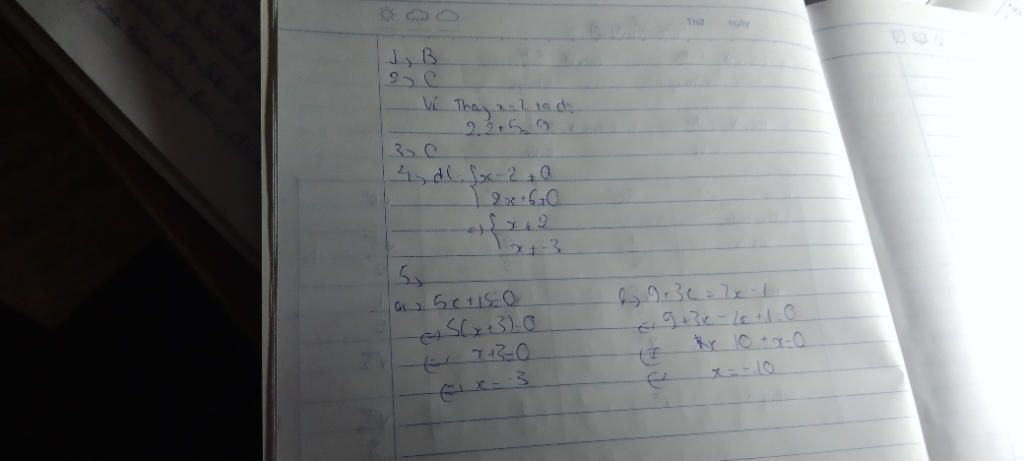 Thứ Ngày
1, B
2, C
Vì Thay x=2 ta dc
2.2+5=9
3, C
4, đk {x-2≠0
{2x+6≠0
=> {x≠2
{x≠-3
5,
a, 5x+15=0
<=> 5(x+3)=0
<=> x+3=0
<=> x=-3
b, 9+3x=2x-1
<=> 9+3x-2x+1=0
<=> 10+x=0
<=> x=-10